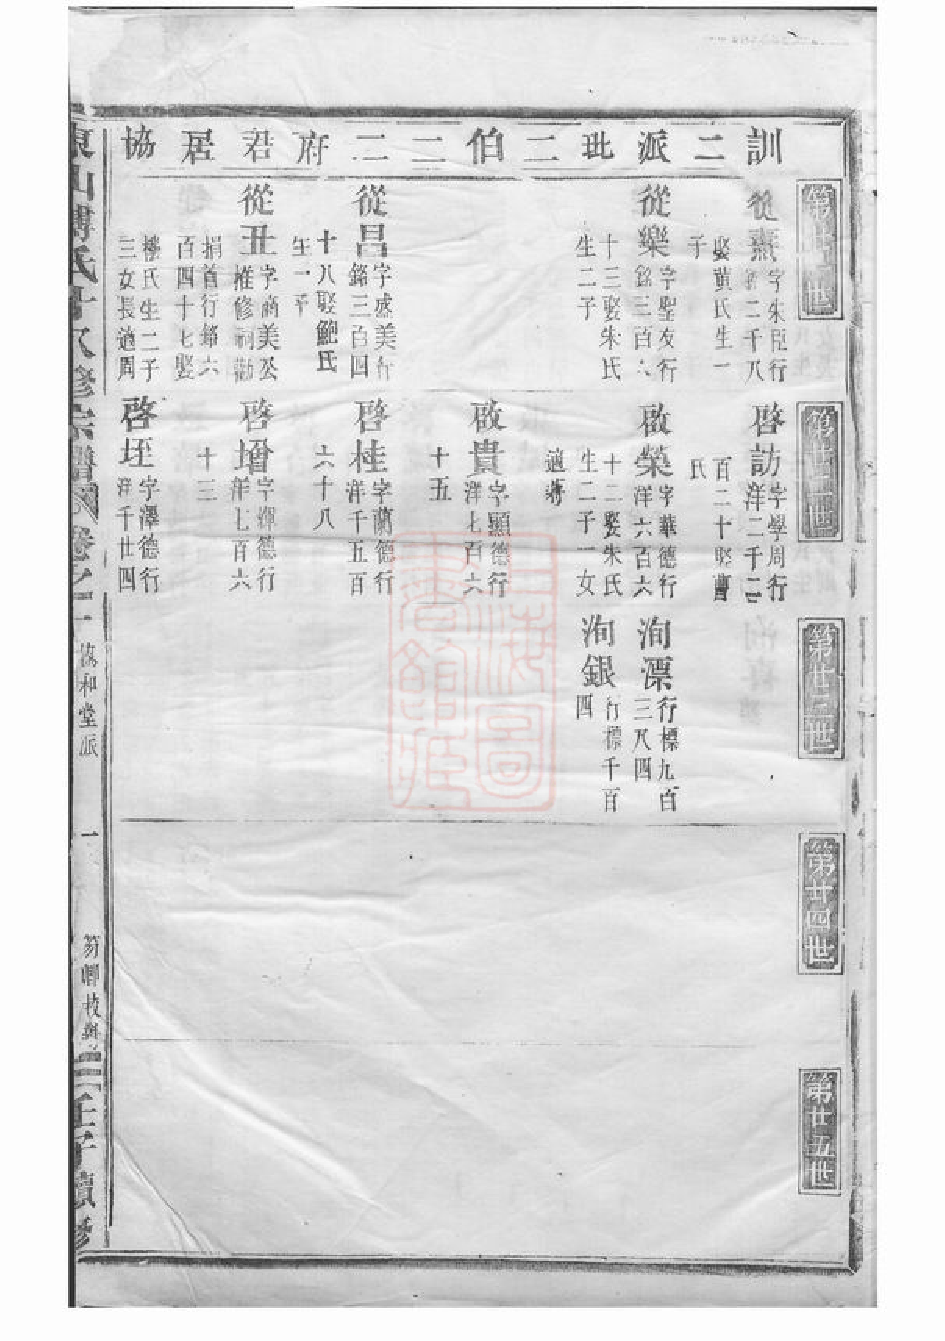 訓二派玭二伯二二府君居協
第廿一世
從燾 字朱臣行
銘二千八
娶黃氏生一
子
從樂 字聖友行
銘三百八
十三娶朱氏
生二子
從昌 字盛美行
銘三百四
十八娶鮑氏
生一子
從丑 字商美公
惟修祠勸
捐首行銘六
百四十七娶
樓氏生二子
三女長適周
第廿二世
啓訪 字學周行
洋二千二
百二十娶曹
氏
啟榮 字華德行
洋六百六
十二娶朱氏
生二子一女
適蔣
啟貴 字顯德行
洋七百六
十五
啓桂 字蘭德行
洋千五百
六十八
啓增 字輝德行
洋七百六
十三
啓坯 字澤德行
洋千廿四
第廿三世
洵漂 行標九百
三八四
洵銀 行標千百
四
第廿四世
第廿五世
東山傅氏十八修宗譜 卷之
協和堂派
一
壬子續修
上海圖書館藏